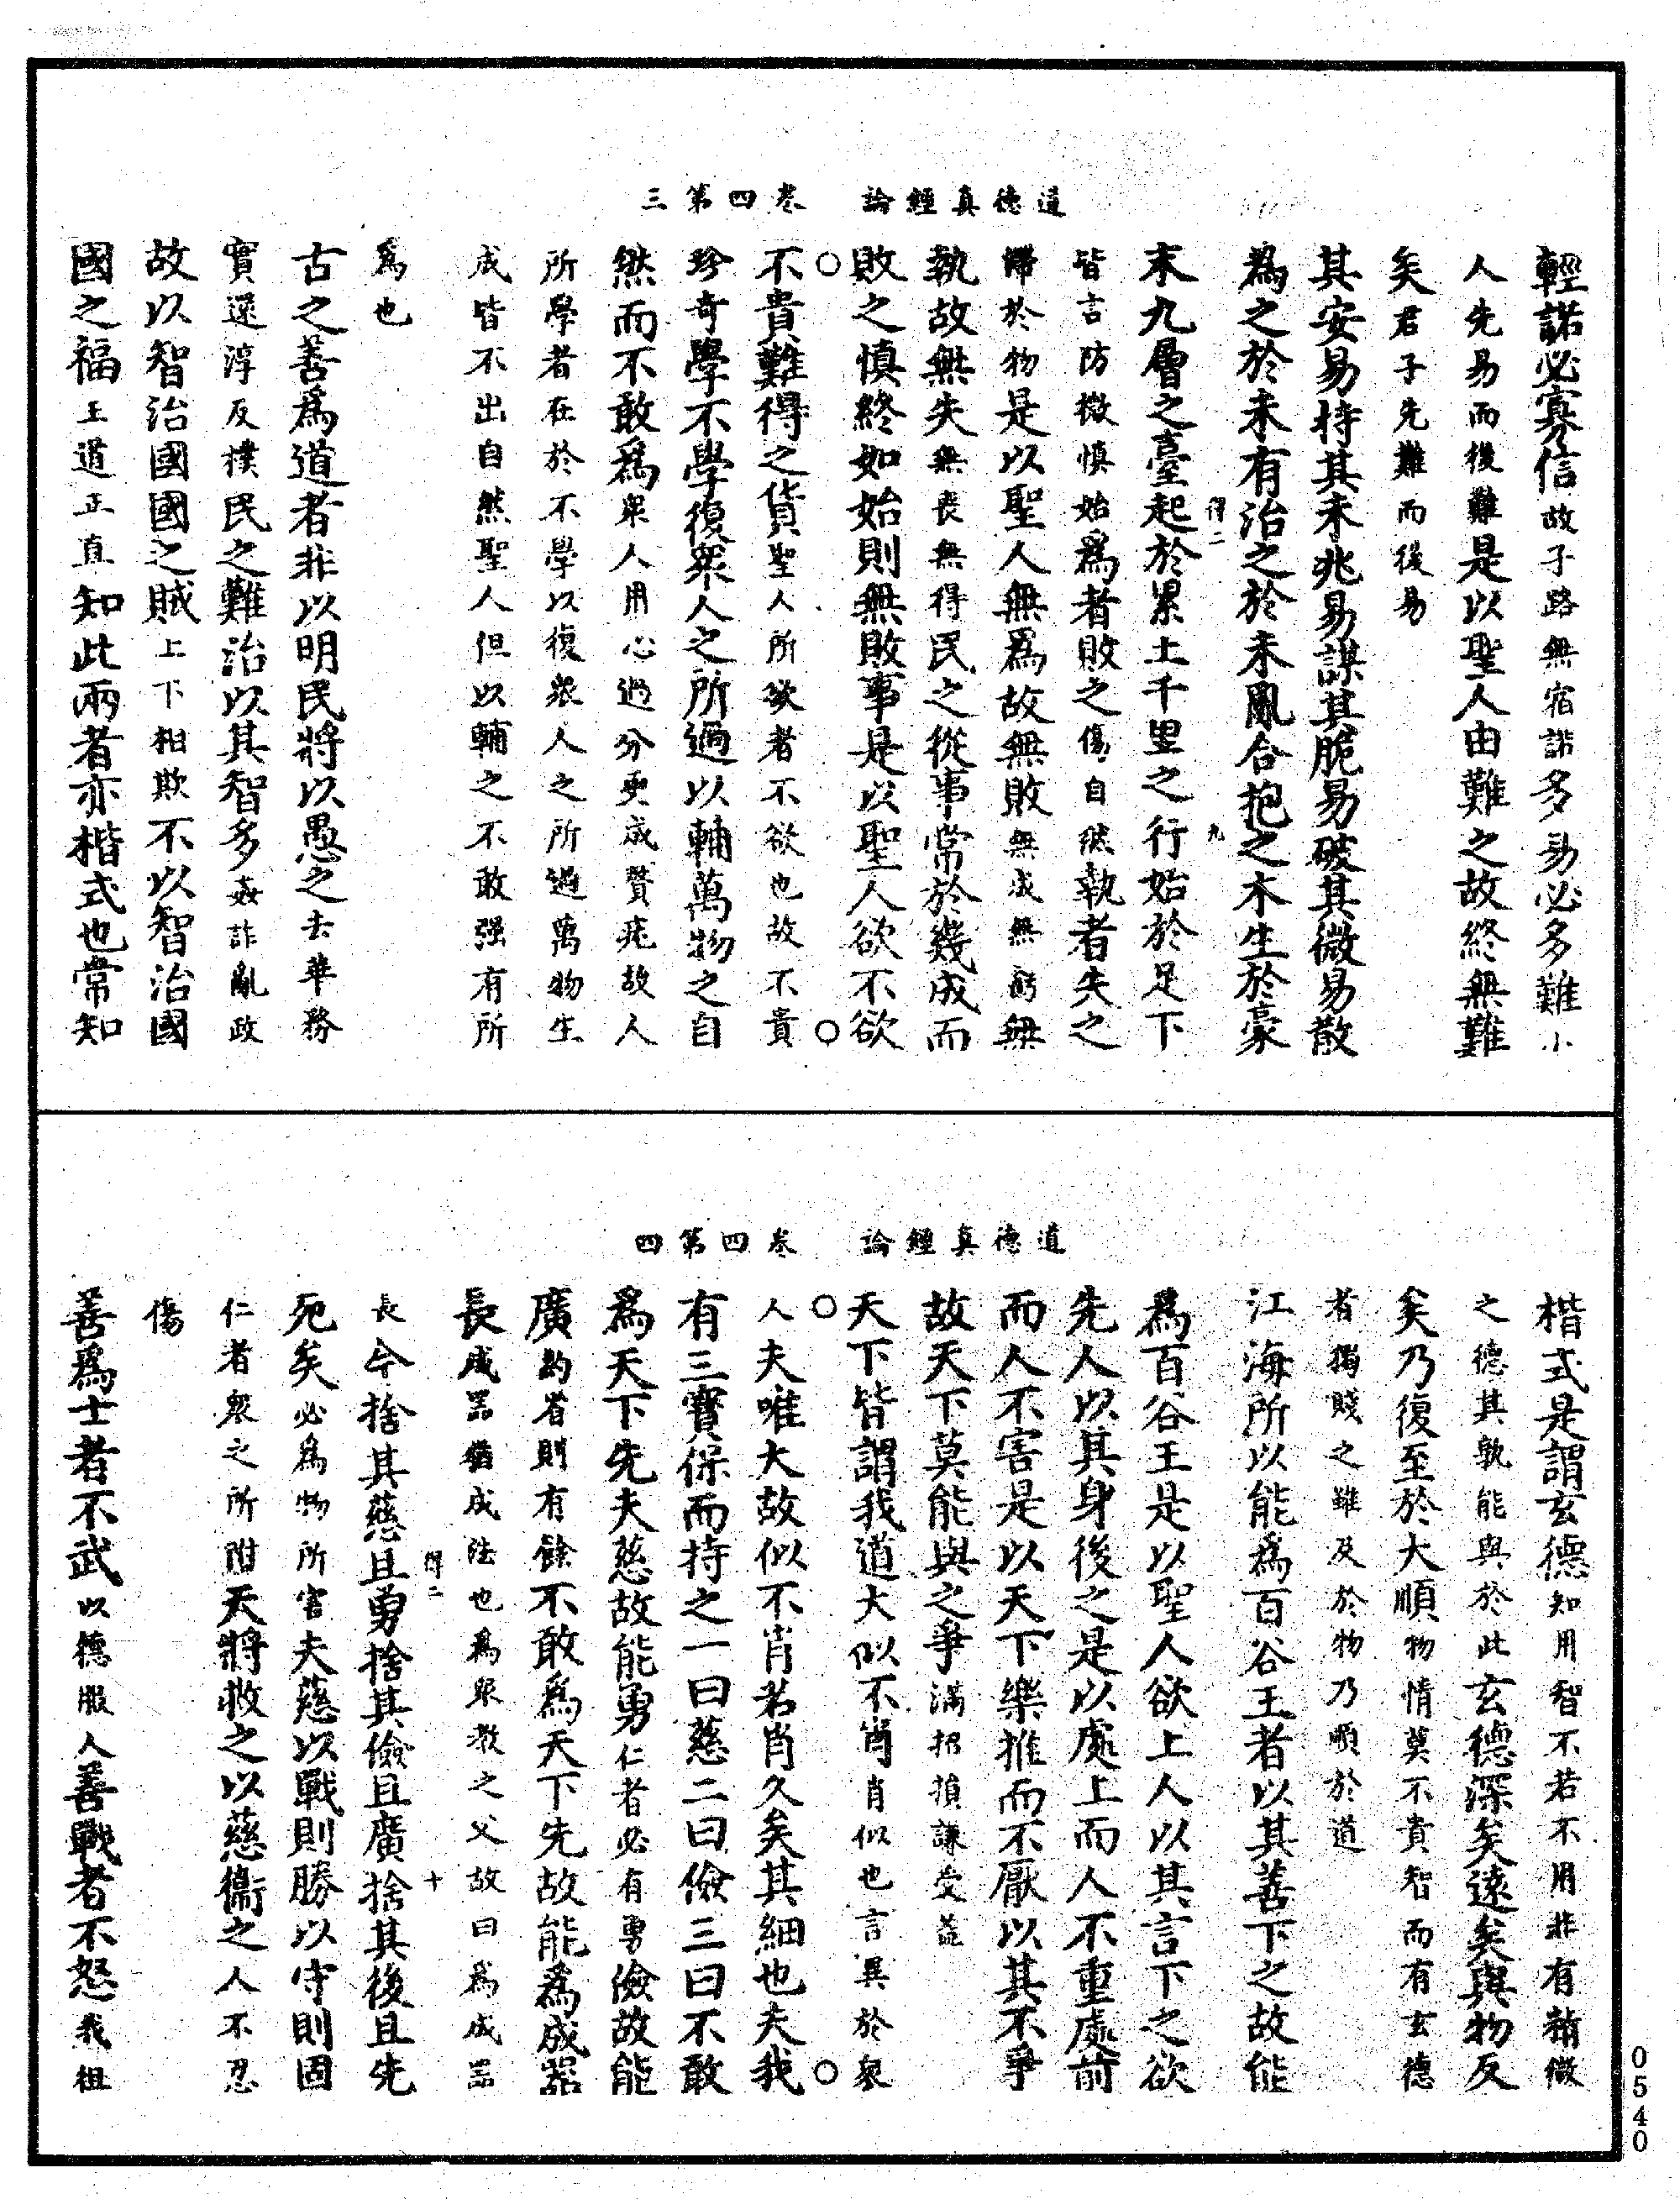 道德真經論　卷四第三
輕諾必寡信故子路無宿諾多易必多難小
人先易而後難是以聖人由難之故終無難
矣君子先難而後易
其安易持其未兆易謀其脆易破其微易散
為之於未有治之於未亂合抱之木生於豪
得二　九
末九層之臺起於累土千里之行始於足下
皆言防微慎始爲者敗之傷自然執者失之
歸於物是以聖人無爲故無敗無成無虧無
執故無失無喪無得民之從事常於幾成而
敗之慎終如始則無敗事是以聖人欲不欲
不貴難得之貨聖人所欲者不欲也故不貴
珍奇學不學復衆人之所過以輔萬物之自
然而不敢爲衆人用心過分更成贅疣故人
所學者在於不學以復衆人之所過萬物生
成皆不出自然聖人但以輔之不敢强有所
爲也
古之善爲道者非以明民將以愚之去華務
實還淳反樸民之難治以其智多姦詐亂政
故以智治國國之賊上下相欺不以智治國
國之福上道正直知此兩者亦楷式也常知
道德真經論　卷四第四
楷式是謂玄德知用智不若不用非有精微
之德其孰能與於此玄德深矣遠矣與物反
矣乃復至於大順物情莫不貴智而有玄德
者獨賤之雖反於物乃順於道
江海所以能爲百谷王者以其善下之故能
爲百谷王是以聖人欲上人以其言下之欲
先人以其身後之是以處上而人不重處前
而人不害是以天下樂推而不厭以其不爭
故天下莫能與之爭滿招損謙受益
天下皆謂我道大似不肖肖似也言異於衆
人夫唯大故似不肖若肖久矣其細也夫我
有三寶保而持之一曰慈二曰儉三曰不敢
爲天下先夫慈故能勇仁者必有勇儉故能
廣約者則有餘不敢爲天下先故能爲成器
長成器猶成法也爲衆教之父故曰爲成器
得二　十
長今捨其慈且勇捨其儉且廣捨其後且先
死矣必爲物所害夫慈以戰則勝以守則固
仁者衆之所附天將救之以慈衞之人不忍
傷
善爲士者不武以德服人善戰者不怒我徂
0540